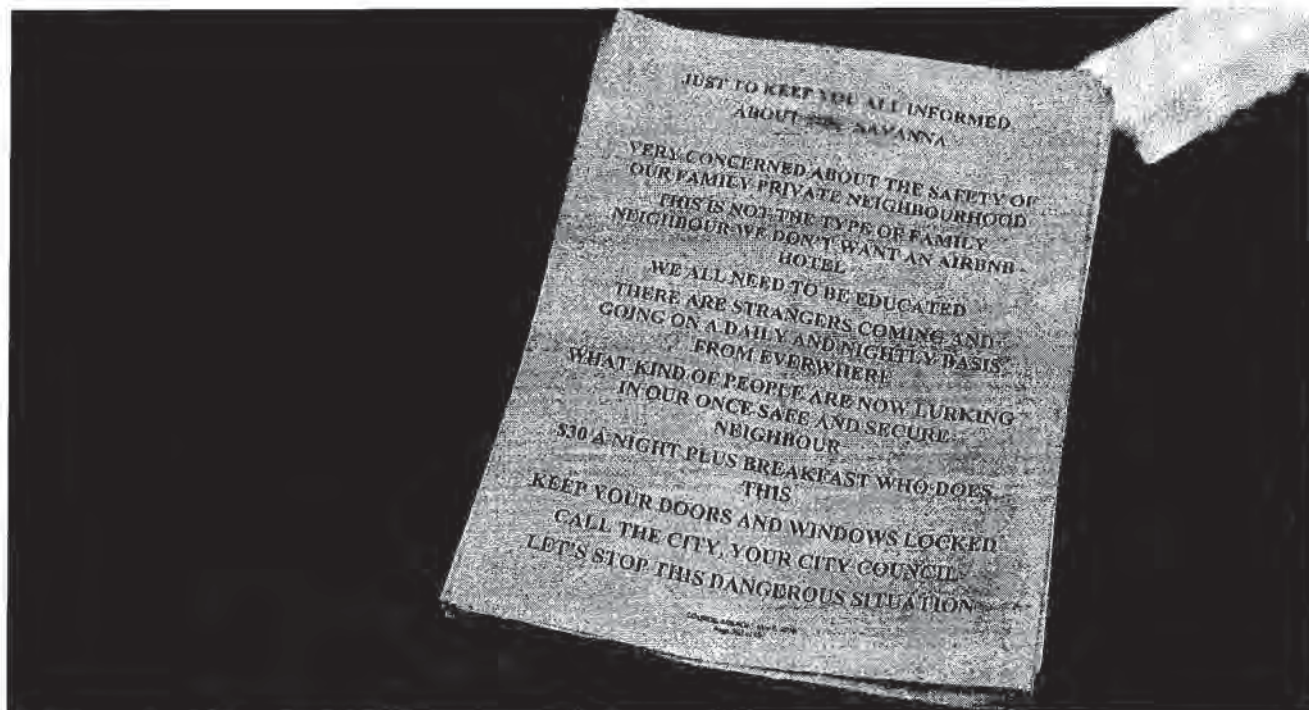 JUST TO KEEP YOU ALL INFORMED
ABOUT SAVANNA
VERY CONCERNED ABOUT THE SAFETY OF
OUR FAMILY PRIVATE NEIGHBOURHOOD
THIS IS NOT THE TYPE OF FAMILY
NEIGHBOUR WE DON'T WANT AN AIRBNB
HOTEL
WE ALL NEED TO BE EDUCATED
THERE ARE STRANGERS COMING AND
GOING ON A DAILY AND NIGHTLY BASIS
FROM EVERWHERE
WHAT KIND OF PEOPLE ARE NOW LURKING
IN OUR ONCE SAFE AND SECURE
NEIGHBOUR
$30 A NIGHT PLUS BREAKFAST WHO DOES
THIS
KEEP YOUR DOORS AND WINDOWS LOCKED
CALL THE CITY, YOUR CITY COUNCIL
LET'S STOP THIS DANGEROUS SITUATION